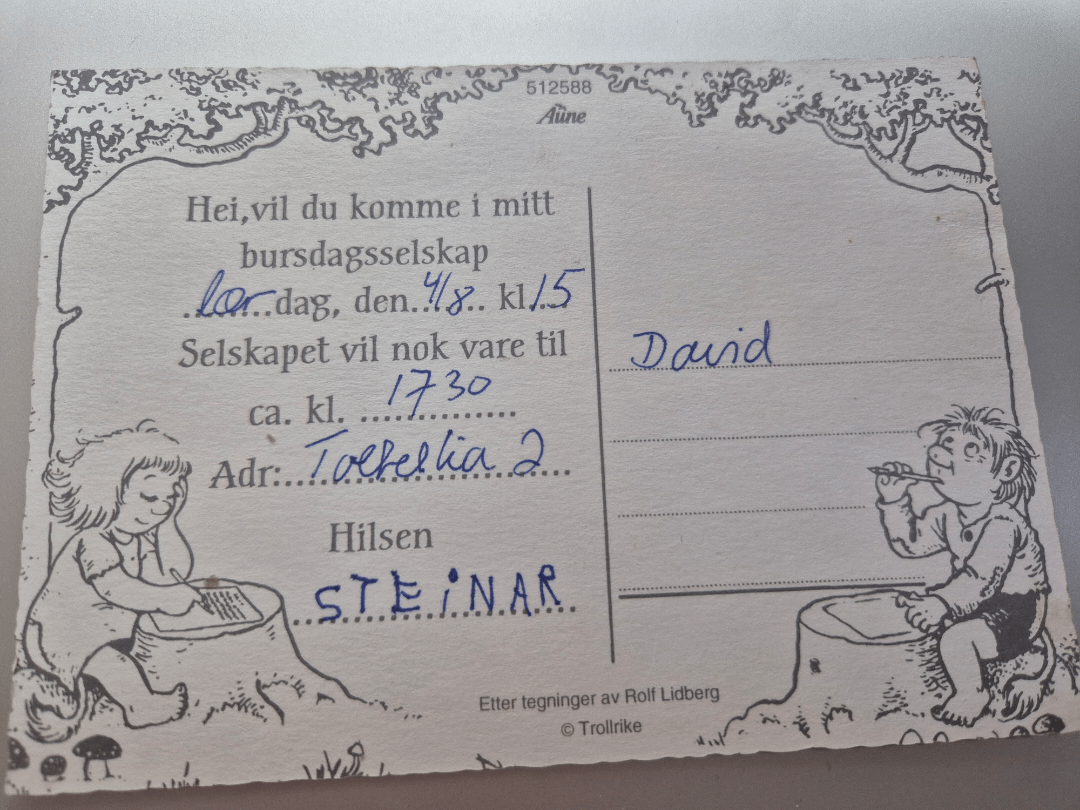 512588
Aune
Hei, vil du komme i mitt
bursdagsselskap
lørdag, den 4/8 kl. 15
Selskapet vil nok vare til
ca. kl. 1730
Adr: 2
Hilsen
STEiNAR
David
Etter tegninger av Rolf Lidberg
© Trollrike